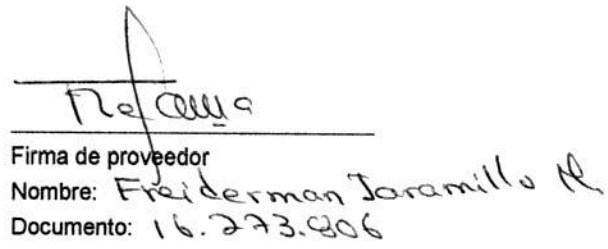 Firma de proveedor
Nombre: Freiderman Jaramillo M.
Documento: 16.273.806